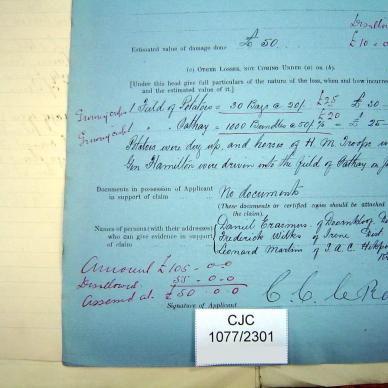 Disallowed
Estimated value of damage done £50. £10
(c) OTHER LOSSES, NOT COMING UNDER (a) OR (b).
[Under this head give full particulars of the nature of the loss, when and how incurred
and the estimated value of it.]
1 Field of Potatoes = 30 Bags @ 20/ £25 £ 30
" Oathay = 1000 Bundles @ 50/% £20 £ 25
Potatoes were dug up, and horses of H M Troops
Gen Hamilton were driven into the field of Oathay
Documents in possession of Applicant
in support of claim No documents
(These documents or certified copies should be attached
the claim).
Names of persons (with their addresses)
who can give evidence in support
of claim
Daniel Erasmus of
Frederick Wilks of Irene
Leonard Martin of
Amount £105-0-0
Disallowed 55-0-0
Assessed at £50 0 0
Signature of Applicant C. C.
CJC
1077/2301